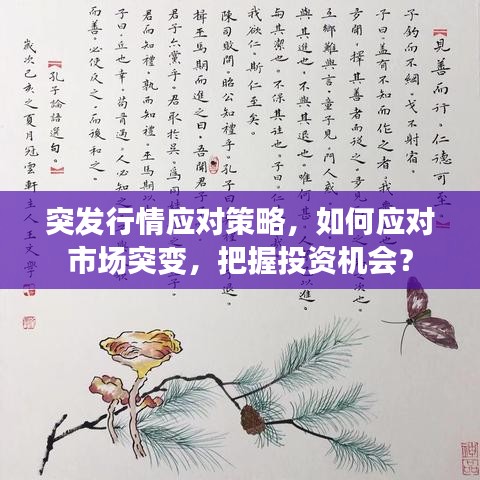 【見善而行。仁德可
子釣而不綱。弋不射宿。
子曰。蓋有不知而作之者。我
多聞。擇其善者而從之。多見
互鄉難與言。童子見。門人惑。
與其進也。不與其退也。唯
與其潔也。不保其往也。子曰。
我欲仁。斯仁至矣。
陳司敗問。昭公知禮乎。孔子曰
退。
揖巫馬期而進之曰。吾聞君
君子亦黨乎。君取於吳。為同
君而知禮。孰不知禮。巫馬期
子曰。丘也幸。苟有過。人必知
而善。必使反之。而後和之。
【孔子論語選句。】
歲次己亥之夏月冠雲軒主人王文學
突发行情应对策略，如何应对
市场突变，把握投资机会？